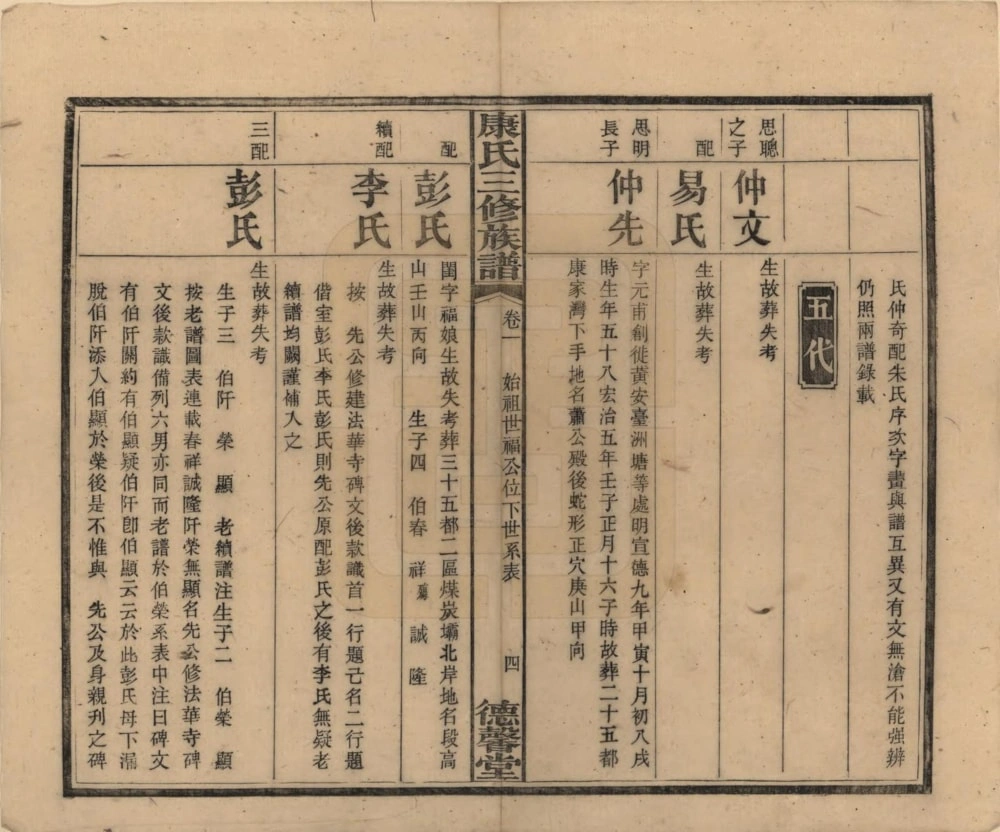 氏仲奇配朱氏序次字畫與譜互異又有文無滄不能強辨
仍照兩譜錄載
五代
思聰之子
仲文
生故葬失考
配
易氏
生故葬失考
思明長子
仲先
字元甫創徙黃安臺洲塘等處明宣德九年甲寅十月初八戌
時生年五十八宏治五年壬子正月十六子時故葬二十五都
康家灣下手地名蕭公殿後蛇形正穴庚山甲向
康氏三修族譜
卷一
始祖世福公位下世系表
四
德馨堂
配
彭氏
閨字福娘生故失考葬三十五都二區煤炭壩北岸地名段高
山壬山丙向 生子四 伯春 祥 誠 隆
續配
李氏
生故葬失考
按 先公修建法華寺碑文後款識首一行題己名二行題
偕室彭氏李氏彭氏則先公原配彭氏之後有李氏無疑老
續譜均闕謹補入之
三配
彭氏
生故葬失考
生子三 伯阡 榮 顯 老續譜注生子二 伯榮 顯
按老譜圖表連載春祥誠隆阡榮無顯名先公修法華寺碑
文後款識備列六男亦同而老譜於伯榮系表中注曰碑文
有伯阡關約有伯顯疑伯阡卽伯顯云云於此彭氏母下漏
脫伯阡添入伯顯於榮後是不惟與 先公及身親刋之碑